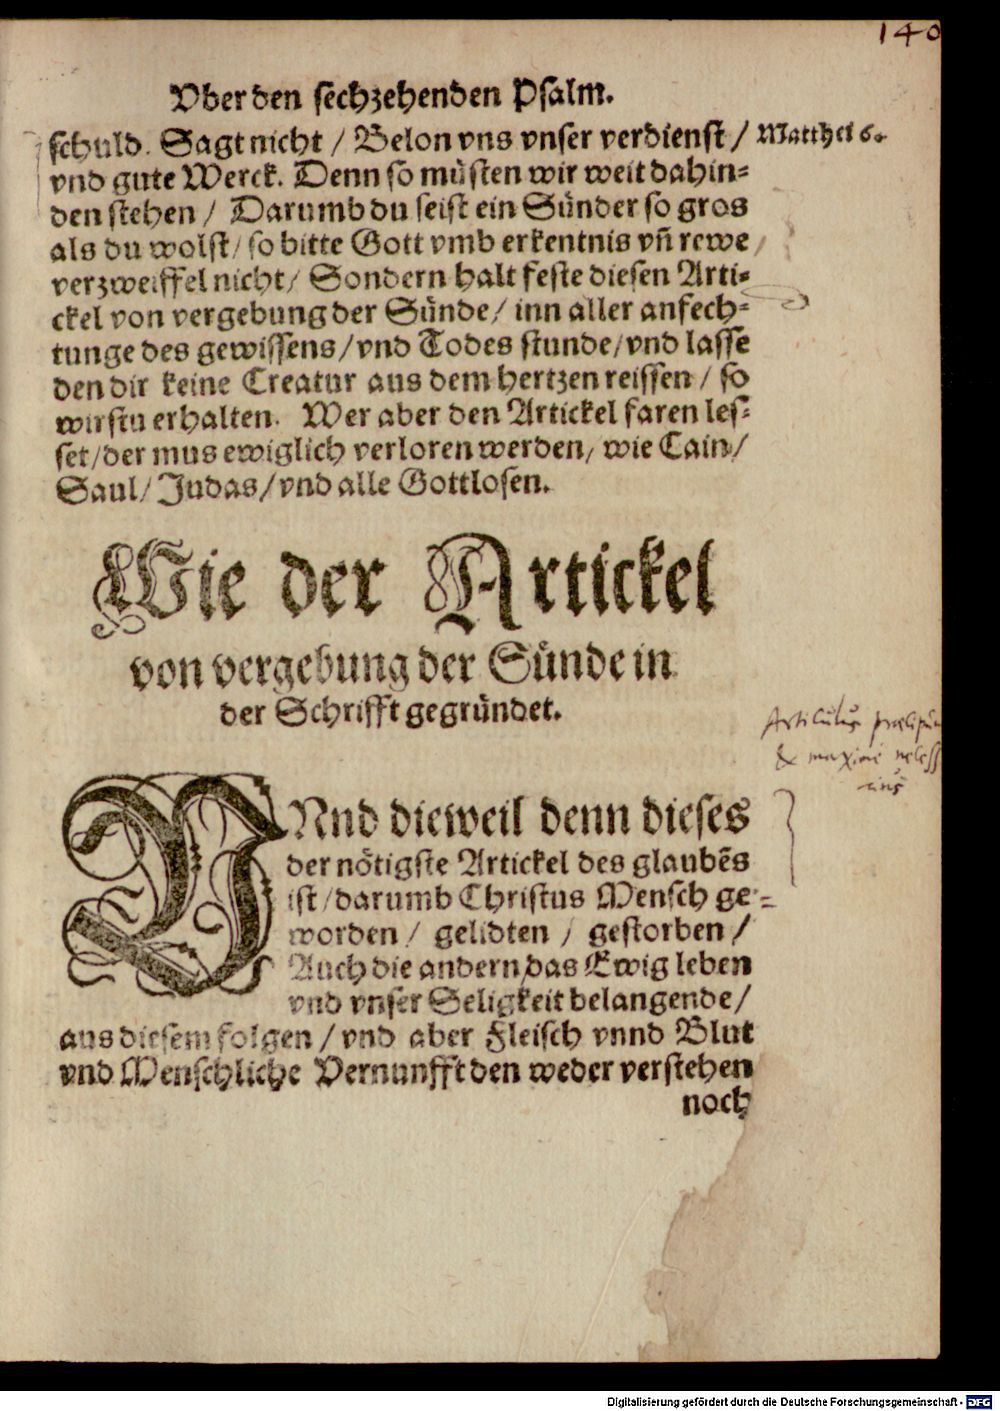 140
Vber den sechzehenden Psalm.
schuld. Sagt nicht / Belon vns vnser verdienst / Matthei 6.
vnd gute Werck. Denn so müsten wir weit dahin=
den stehen / Darumb du seist ein Sünder so gros
als du wolst / so bitte Gott vmb erkentnis vñ rewe /
verzweiffel nicht / Sondern halt feste diesen Arti=
ckel von vergebung der Sünde / inn aller anfech=
tunge des gewissens / vnd Todes stunde / vnd lasse
den dir keine Creatur aus dem hertzen reissen / so
wirstu erhalten. Wer aber den Artickel faren les=
set / der mus ewiglich verloren werden, wie Cain /
Saul / Judas / vnd alle Gottlosen.
Wie der Artickel
von vergebung der Sünde in
der Schrifft gegründet.
Articulus præcipuu
& maxime necess
ariũs
VNnd dieweil denn dieses
der nötigste Artickel des glaubẽs
ist / darumb Christus Mensch ge=
worden / gelidten / gestorben /
Auch die andern / das Ewig leben
vnd vnser Seligkeit belangende /
aus diesem folgen / vnd aber Fleisch vnnd Blut
vnd Menschliche Vernunfft den weder verstehen
noch
Digitalisierung gefördert durch die Deutsche Forschungsgemeinschaft - DFG